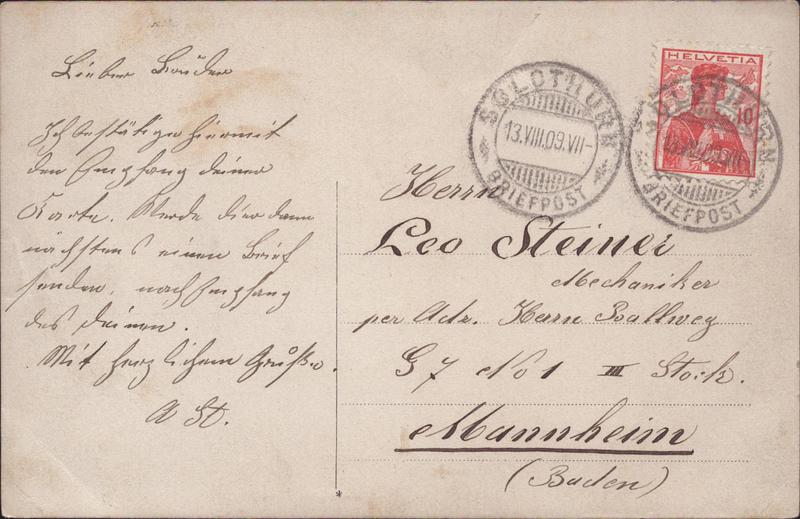 Lieber Bruder
Ich bestätige hiermit
den Empfang deiner
Karte. Werde dir dann
nächstens einen Brief
senden, nach Empfang
des deinen.
Mit herzlichem Gruße.
A St.
HELVETIA
10
SOLOTHURN
13.VIII.09.VII-
BRIEFPOST
SOLOTHURN
13.VIII.09.VII-
BRIEFPOST
Herrn
Leo Steiner
Mechaniker
per Adr. Herrn Ballweg
G 7 No 1 III Stock.
Mannheim
(Baden)